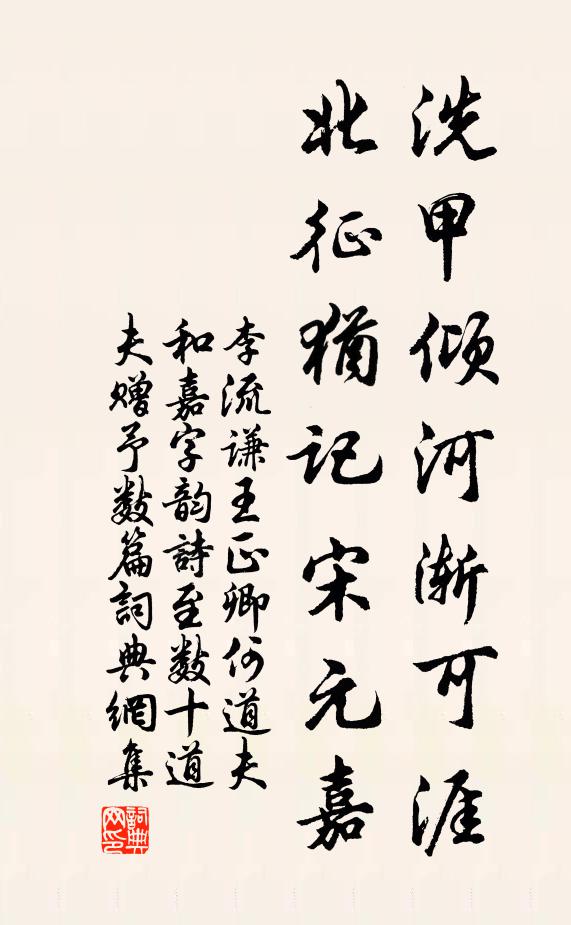 洗甲倾河渐可涯
北征犹记宋元嘉
李流谦王正卿何道夫
和嘉字韵詩至数十道
夫赠予数篇詞典網集
詞典網印